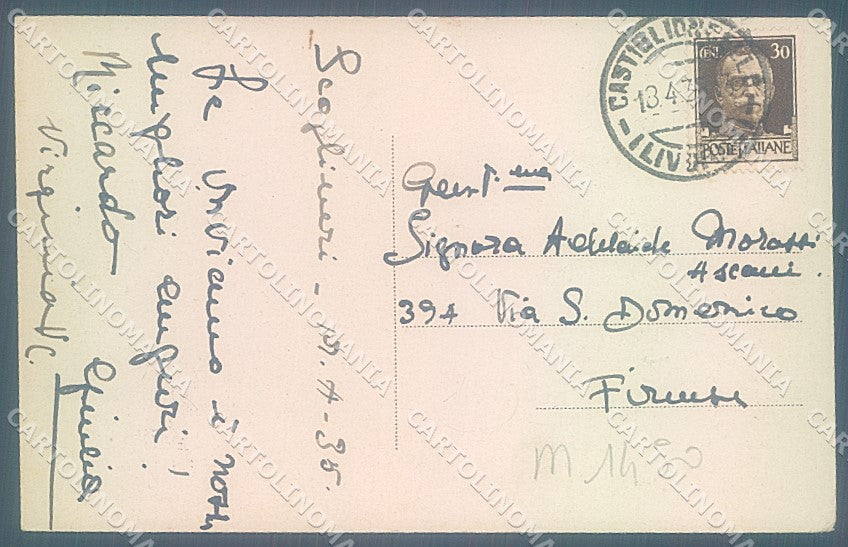 Scoglineri - 17. 4 - 35.
Le inviamo i nostri
migliori auguri!
Riccardo Giulia
Virginia C.
CASTIGLIONCELLO
13.4.3
(LIV
CENT 30
POSTE ITALIANE
Gent.ma
Signora Adelaide Morassi
Ascani.
394 Via S. Domenico
Firenze
M 14
CARTOLINOMANIA